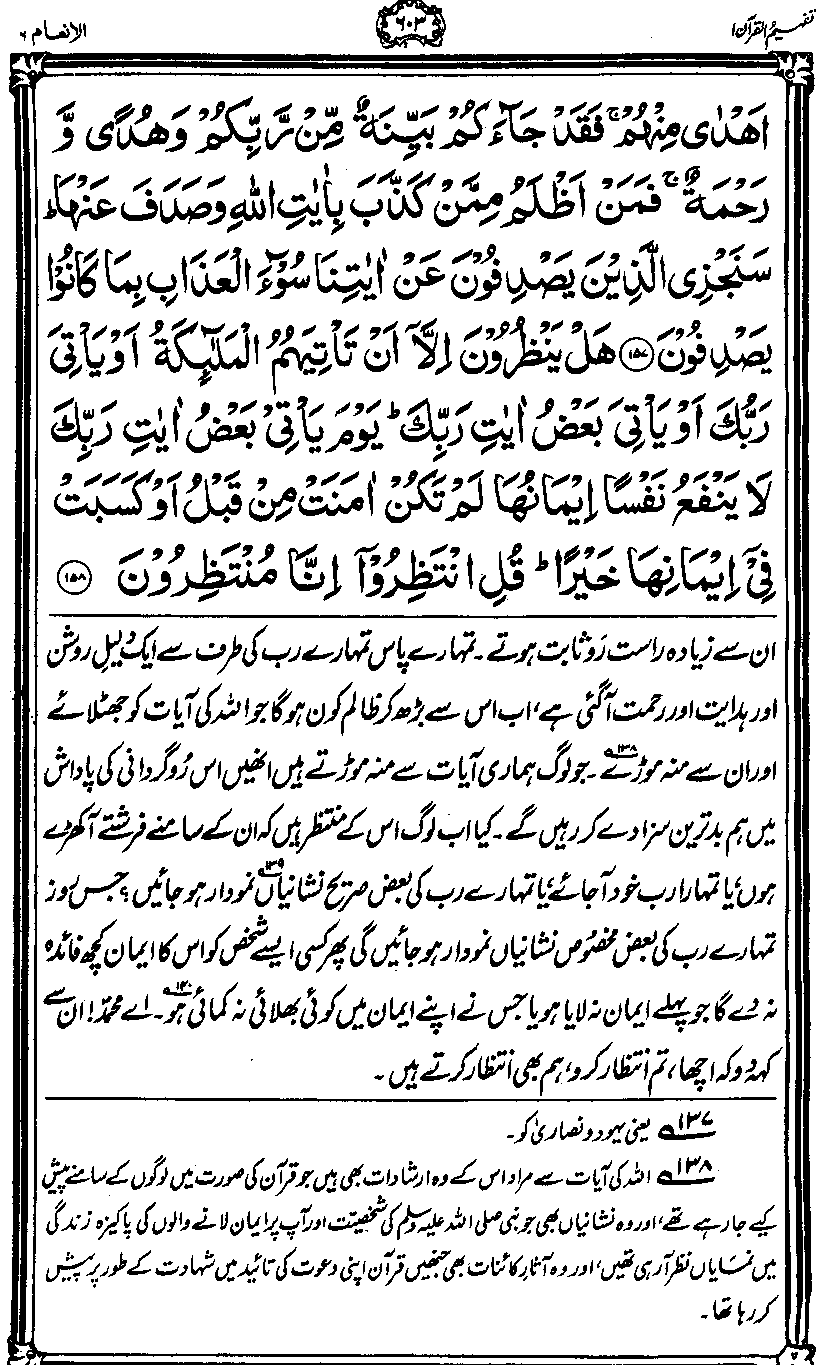 تفہیم القرآن ۱
۶۰۳
الانعام ۶
اَهْدٰى مِنْهُمْ ۚ فَقَدْ جَآءَكُمْ بَيِّنَةٌ مِّنْ رَّبِّكُمْ وَهُدًى وَّ
رَحْمَةٌ ۚ فَمَنْ اَظْلَمُ مِمَّنْ كَذَّبَ بِاٰيٰتِ اللّٰهِ وَصَدَفَ عَنْهَا ؕ
سَنَجْزِى الَّذِيْنَ يَصْدِفُوْنَ عَنْ اٰيٰتِنَا سُوْٓءَ الْعَذَابِ بِمَا كَانُوْا
يَصْدِفُوْنَ ﴿۱۵۷﴾ هَلْ يَنْظُرُوْنَ اِلَّآ اَنْ تَاْتِيَهُمُ الْمَلٰٓئِكَةُ اَوْ يَاْتِىَ
رَبُّكَ اَوْ يَاْتِىَ بَعْضُ اٰيٰتِ رَبِّكَ ؕ يَوْمَ يَاْتِىْ بَعْضُ اٰيٰتِ رَبِّكَ
لَا يَنْفَعُ نَفْسًا اِيْمَانُهَا لَمْ تَكُنْ اٰمَنَتْ مِنْ قَبْلُ اَوْ كَسَبَتْ
فِىْٓ اِيْمَانِهَا خَيْرًا ؕ قُلِ انْتَظِرُوْٓا اِنَّا مُنْتَظِرُوْنَ ﴿۱۵۸﴾
ان سے زیادہ راست رَو ثابت ہوتے۔ تمہارے پاس تمہارے رب کی طرف سے ایک دلیلِ روشن
اور ہدایت اور رحمت آگئی ہے، اب اس سے بڑھ کر ظالم کون ہوگا جو اللہ کی آیات کو جھٹلائے
اور ان سے منہ موڑے۱۳۸۔ جو لوگ ہماری آیات سے منہ موڑتے ہیں انھیں اس رُوگردانی کی پاداش
میں ہم بدترین سزا دے کر رہیں گے۔ کیا اب لوگ اس کے منتظر ہیں کہ ان کے سامنے فرشتے آکھڑے
ہوں، یا تمہارا رب خود آجائے، یا تمہارے رب کی بعض صریح نشانیاں۱۳۹ نمودار ہو جائیں؟ جس روز
تمہارے رب کی بعض مخصوص نشانیاں نمودار ہو جائیں گی پھر کسی ایسے شخص کو اس کا ایمان کچھ فائدہ
نہ دے گا جو پہلے ایمان نہ لایا ہو یا جس نے اپنے ایمان میں کوئی بھلائی نہ کمائی ہو۱۴۰۔ اے محمدؐ! ان سے
کہہ دو کہ اچھا، تم انتظار کرو، ہم بھی انتظار کرتے ہیں۔
۱۳۷ یعنی یہود و نصاریٰ کو۔
۱۳۸ اللہ کی آیات سے مراد اس کے وہ ارشادات بھی ہیں جو قرآن کی صورت میں لوگوں کے سامنے پیش
کیے جا رہے تھے، اور وہ نشانیاں بھی جو نبی صلی اللہ علیہ وسلم کی شخصیت اور آپ پر ایمان لانے والوں کی پاکیزہ زندگی
میں نمایاں نظر آ رہی تھیں، اور وہ آثارِ کائنات بھی جنھیں قرآن اپنی دعوت کی تائید میں شہادت کے طور پر پیش
کر رہا تھا۔